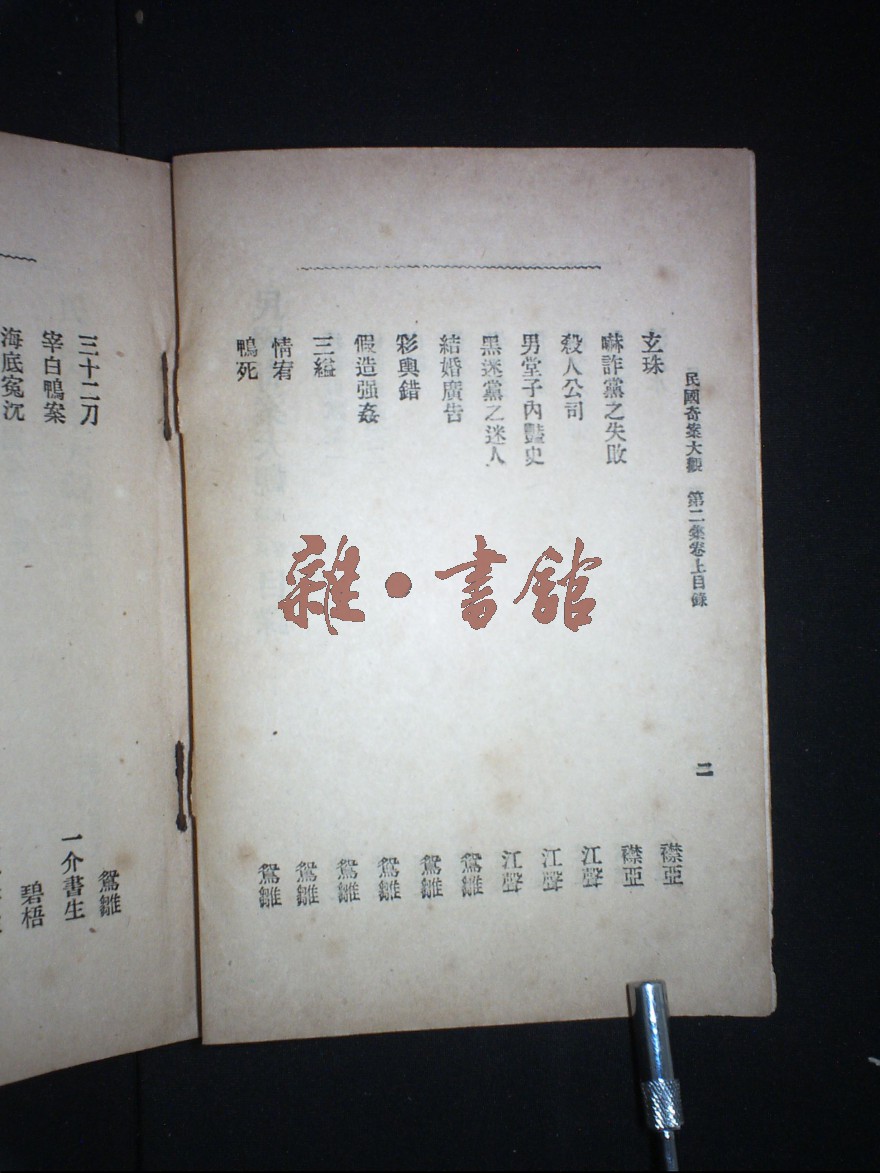 民國奇案大觀 第二集卷上目錄 二
玄珠 襟亞
嚇詐黨之失敗 襟亞
殺人公司 江聲
男堂子內豔史 江聲
黑迷黨之迷人 江聲
結婚廣告 鴛雛
彩輿錯 鴛雛
假造强姦 鴛雛
三縊 鴛雛
情宥 鴛雛
鴨死 鴛雛
三十二刀 鴛雛
宰白鴨案 一介書生
海底冤沉 碧梧
雜·書館